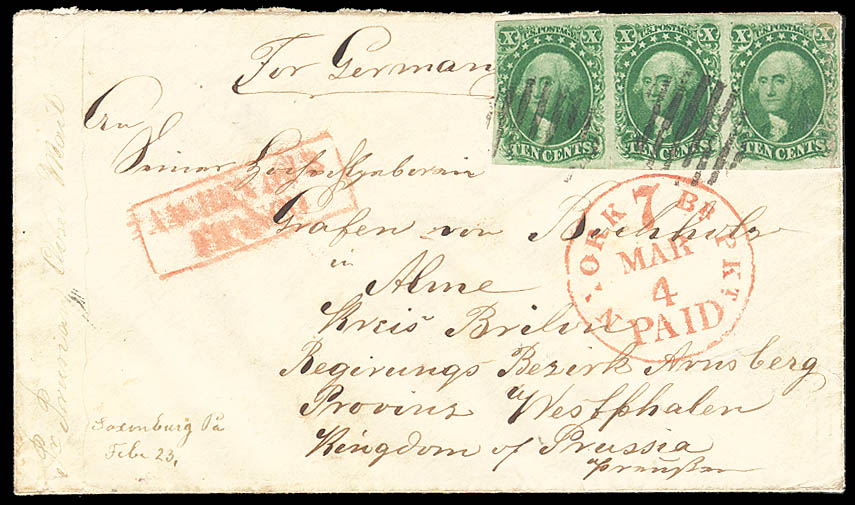 For Germany
X U.S. POSTAGE X X U.S. POSTAGE X X U.S. POSTAGE X
TEN CENTS TEN CENTS TEN CENTS
An
Seiner Hochwohlgeboren
AACHEN
FRANCO
Grafen von Bochholz
in
Alme
Kreis Brilon
Regirungs Bezirk Arnsberg
Provinz Westphalen
Kingdom of Prussia
Preußen
N. YORK 7 Br PKT
MAR
4
PAID
Pr Prussian Mail
Saxonburg Pa
Febr 23.